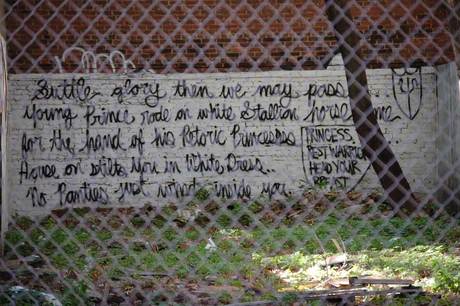 Suttle glory then we may pass...
Young Prince rode on white Stallion horse
for the hand of his Retoric Princesses
House on stilts You in White Dress..
No Panties just wind inside you..
PRINCESS
PEST WARRIOR
HEAD YOUR